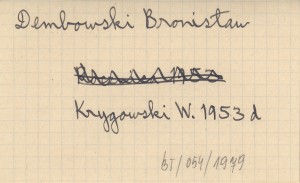 Dembowski Bronisław
Krygowski W. 1953 d
bT/054/1979